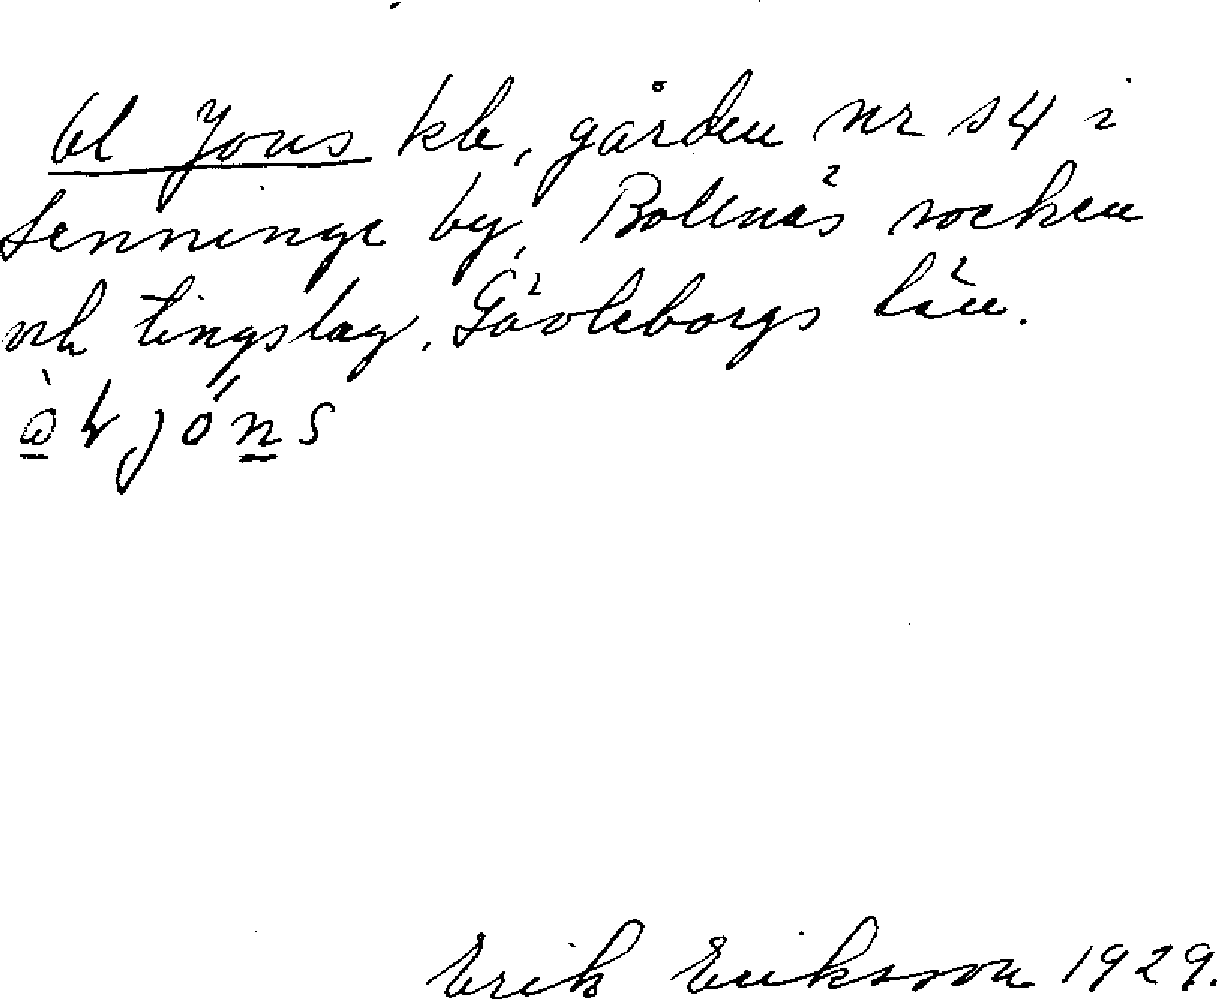 Ol Jons kb, gården nr 14 i
Lenninge by, Bollnäs socken
och tingslag, Gävleborgs län.
Erik Eriksson 1929.